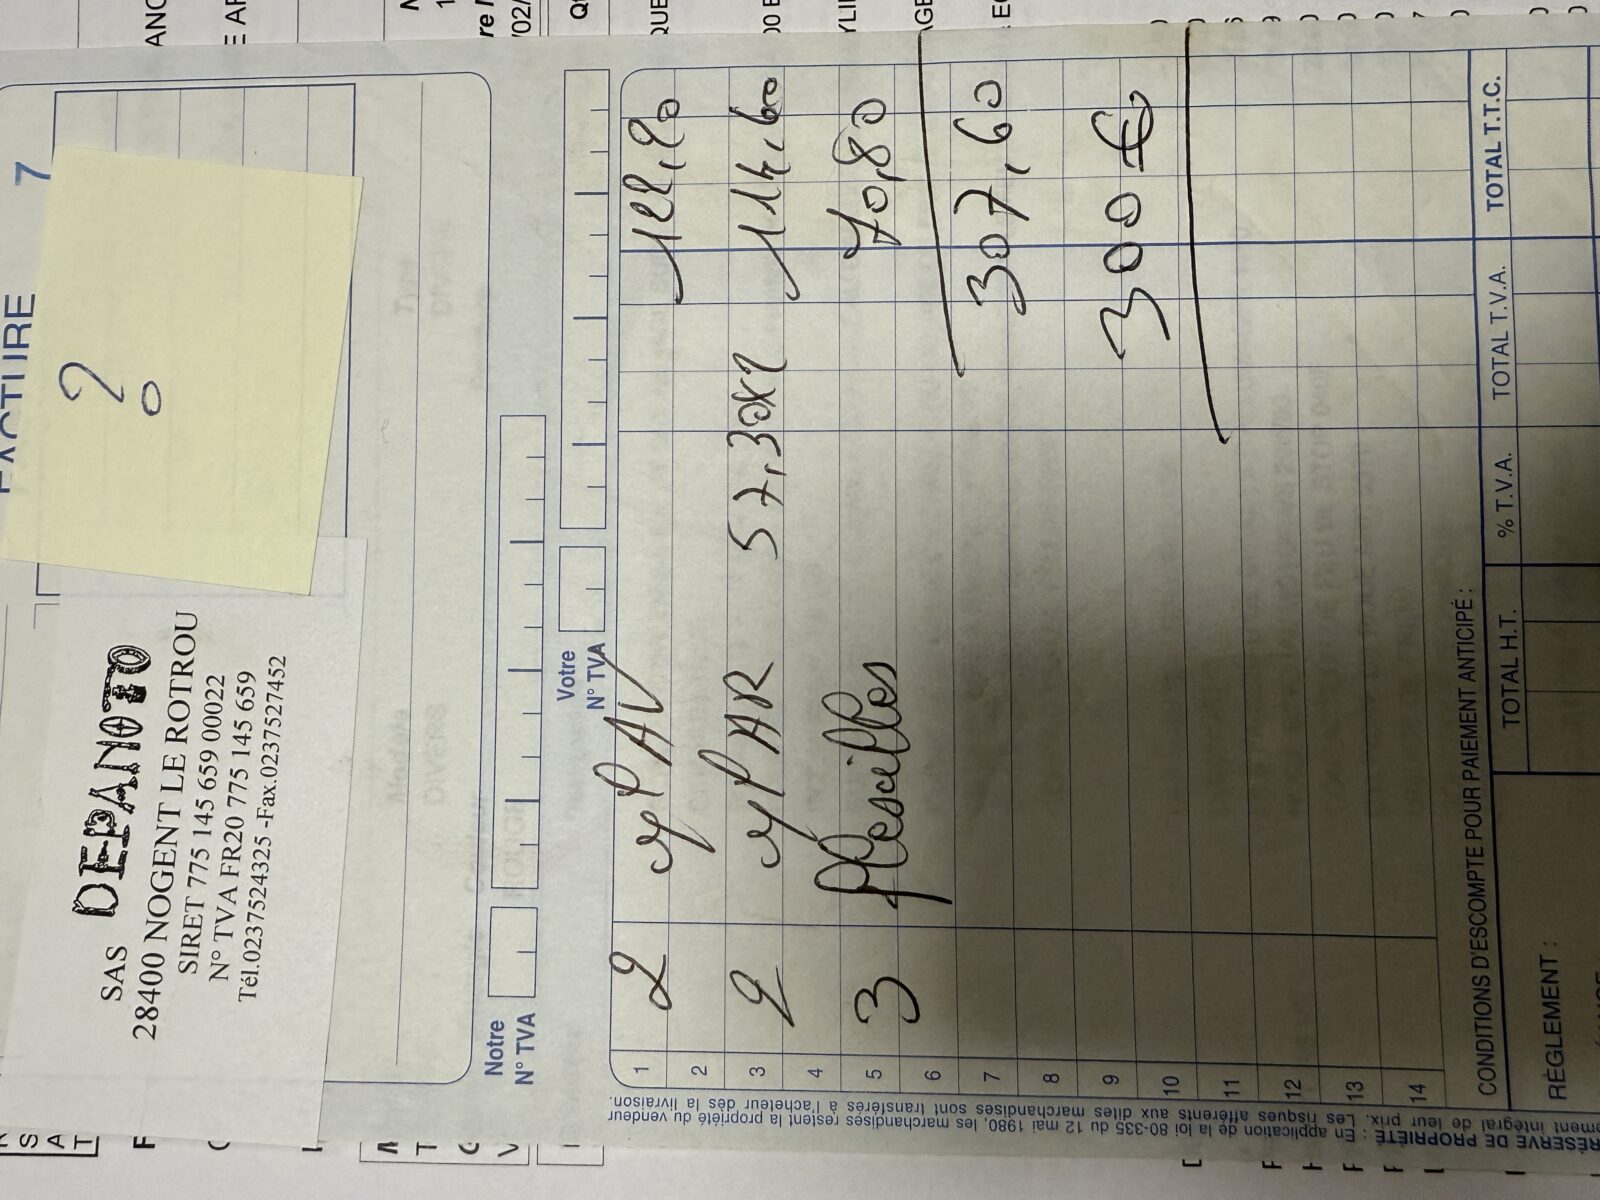 FACTURE 7
?
SAS DEPANOTO
28400 NOGENT LE ROTROU
SIRET 775 145 659 00022
N° TVA FR20 775 145 659
Tél.0237524325 -Fax.0237527452
Notre
N° TVA
Votre
N° TVA
1 2 cyl AV 122,20
2
3 2 cyl AR 57,30x2 114,60
4
5 3 flexibles 70,80
6
7 307,60
8
9 300 €
10
11
12
13
14
CONDITIONS D'ESCOMPTE POUR PAIEMENT ANTICIPÉ :
TOTAL H.T. % T.V.A. TOTAL T.V.A. TOTAL T.T.C.
RÈGLEMENT :
RÉSERVE DE PROPRIÉTÉ : En application de la loi 80-335 du 12 mai 1980, les marchandises restent la propriété du vendeur
intégral de leur prix. Les risques afférents aux dites marchandises sont transférés à l'acheteur dès la livraison.